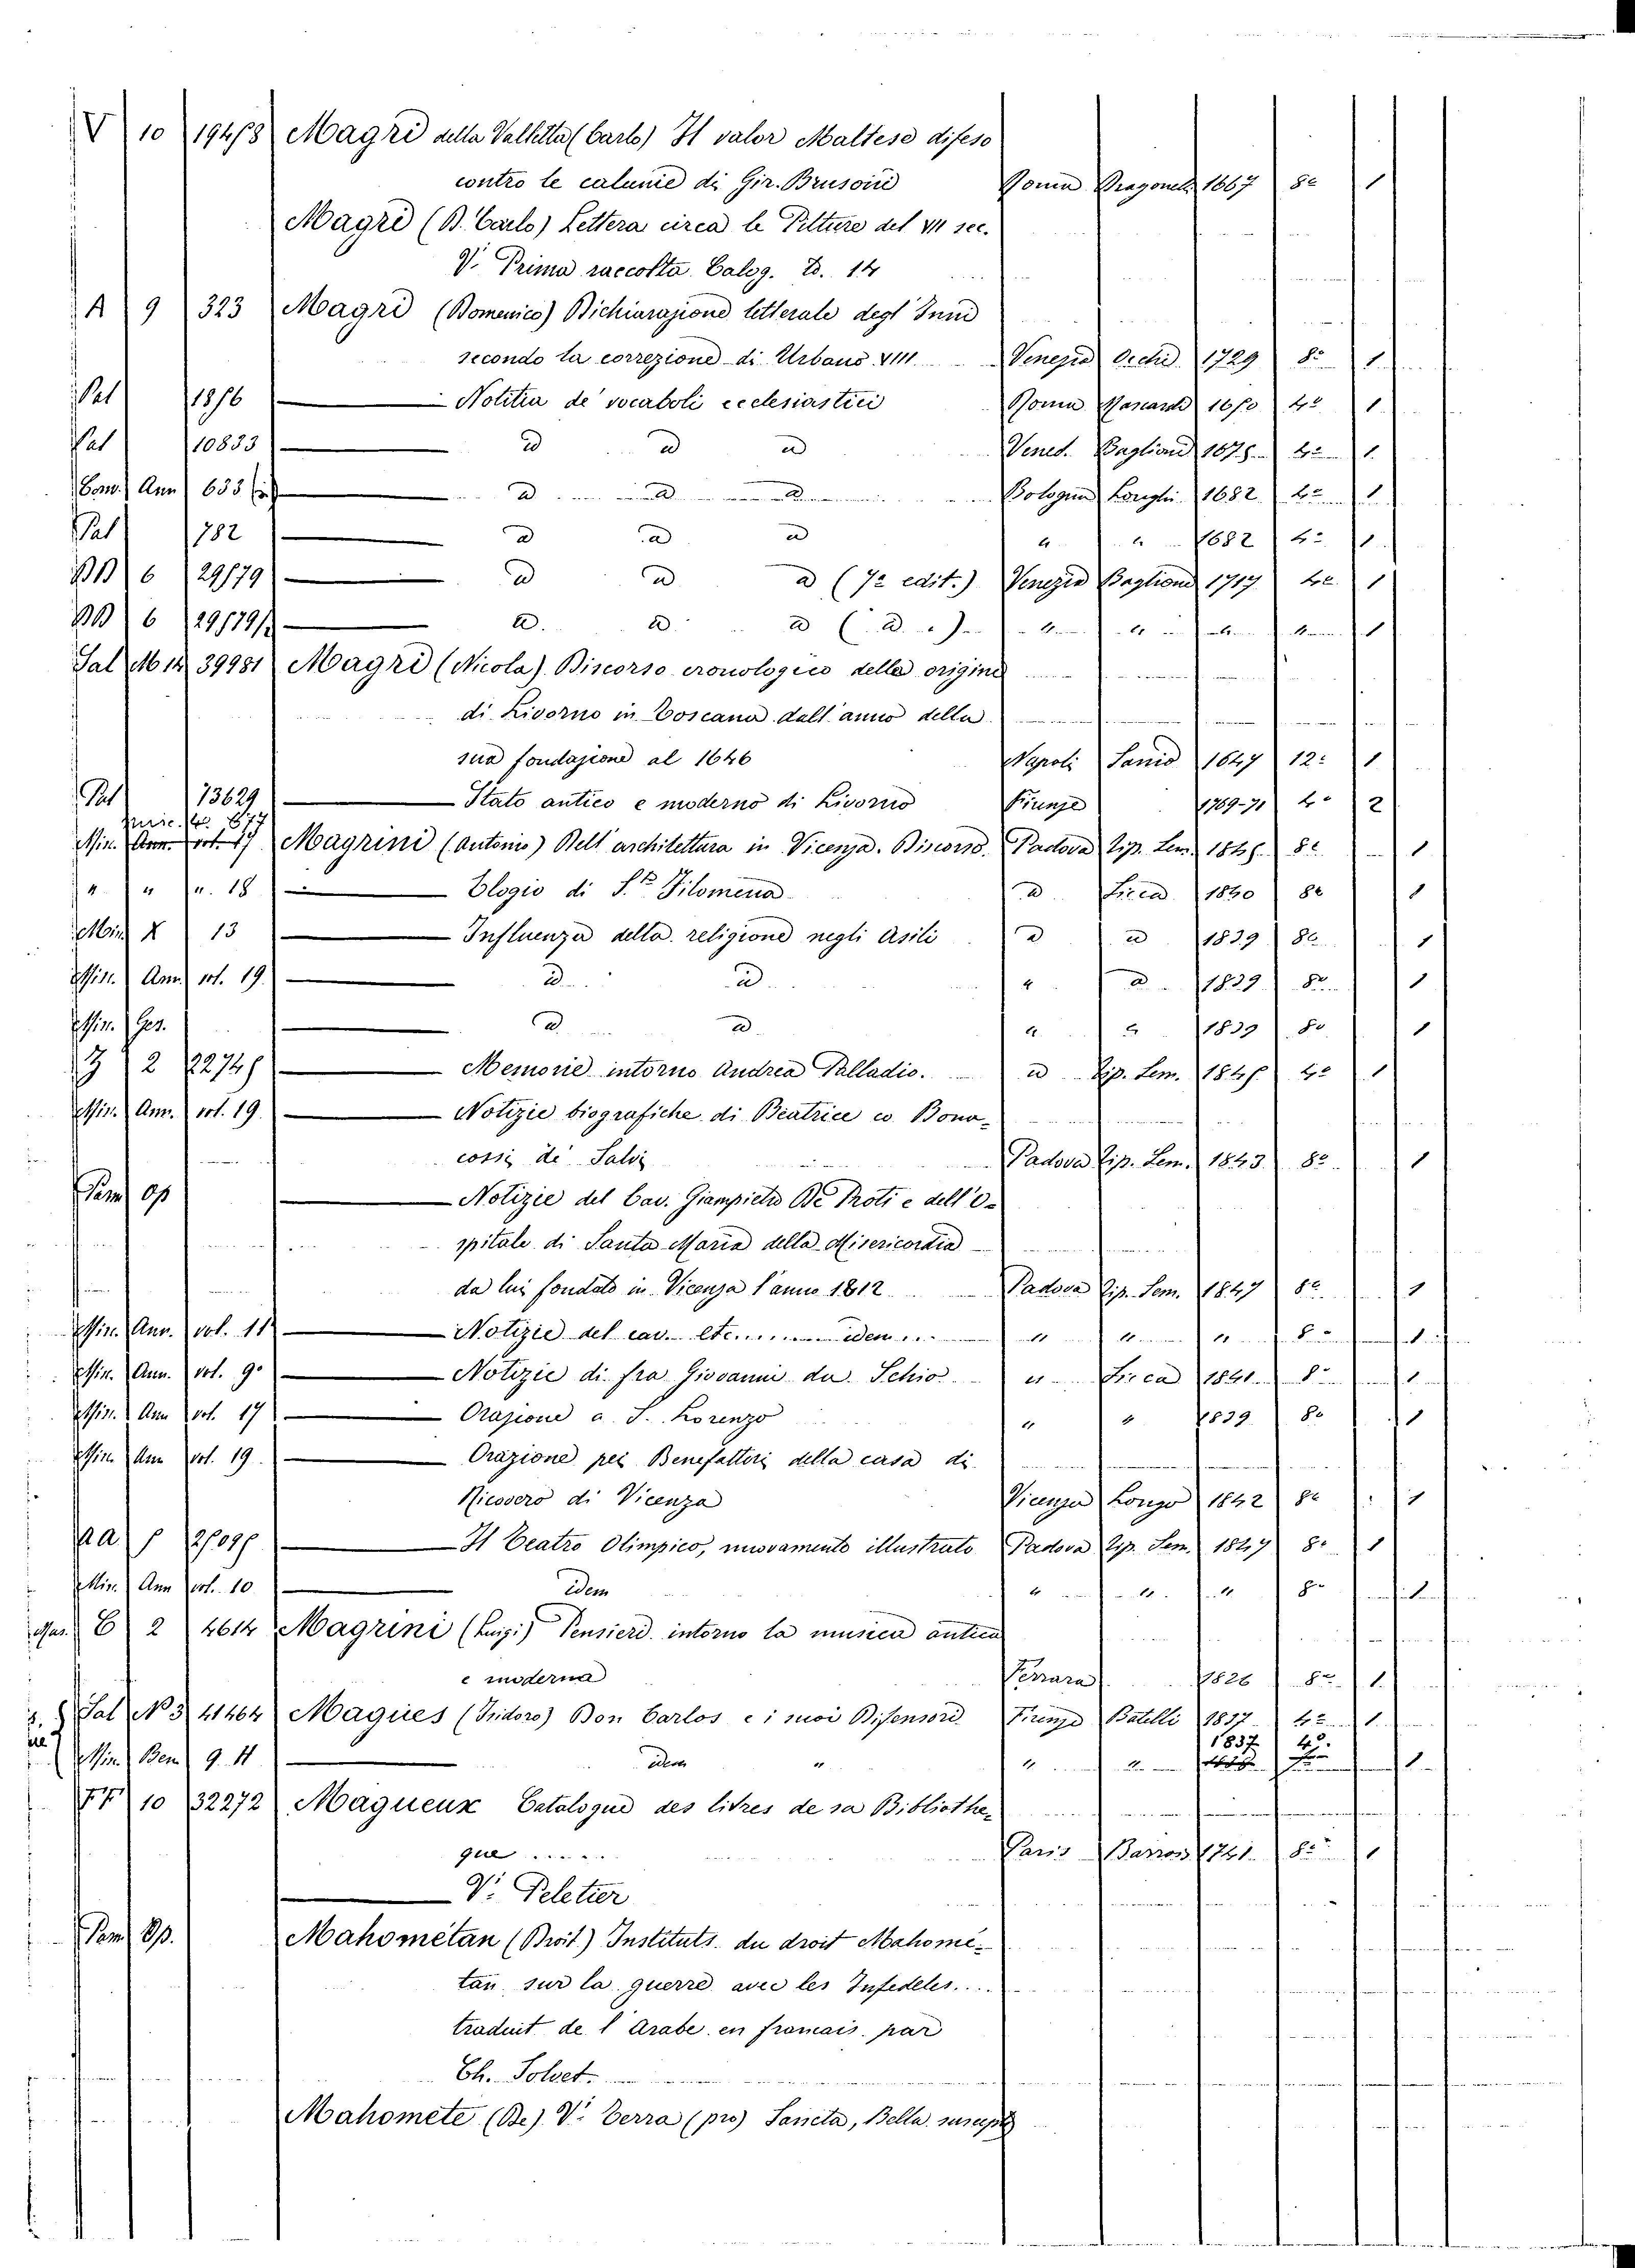 V 10 Magri della Valletta (Carlo) Il valor Maltese difeso
contro le calunie di Gir. Brusoni Roma 1667 8° 1
Magri (D. Carlo) Lettera circa le Pitture del VII sec.
V. Prima raccolta Calog. T. 14
A 9 323 Magri (Domenico) Dichiarazione letterale degl' Inni
secondo la correzione di Urbano VIII Venezia Occhi 1729 8° 1
Pat Notitia de' vocaboli ecclesiastici Roma 4° 1
Pat 10833 id id id Venet. Baglioni 4° 1
Com. Ann 633 id id id Bologna Longhi 1682 4° 1
Pat 782 id id id " " 1682 4° 1
BB 6 id id id (7a edit.) Venezia Baglioni 1717 4° 1
BB 6 id id id (id) " " " " 1
Sal M 14 39981 Magri (Nicola) Discorso cronologico della origine
di Livorno in Toscana dall' anno della
sua fondazione al 1646 Napoli 1647 12° 1
Pat 13629 Stato antico e moderno di Livorno Firenze 1769-71 4° 2
Min. Ann. vol. 17 Magrini (Antonio) Dell' architettura in Vicenza. Discorso. Padova Tip. Sem. 8° 1
" " v. 18 Elogio di S.ta Filomena id 1840 8° 1
Min X 13 Influenza della religione negli Asili id id 1839 8° 1
Min. Ann vol. 19. id id " id 1839 8° 1
Min. Ges. id id " " 1839 8° 1
Z 2 Memorie intorno Andrea Palladio. id Tip. Sem. 4° 1
Min. Ann. vol. 19. Notizie biografiche di Beatrice co. Bona-
cossi de' Salvi Padova Tip. Sem. 1843 8° 1
Fam Op Notizie del Cav. Giampietro De Proti e dell' O-
spitale di Santa Maria della Misericordia
da lui fondato in Vicenza l'anno 1412 Padova Tip. Sem. 1847 8° 1
Min. Ann. vol. 11 Notizie del cav. etc. idem " " " 8° 1
Min. Ann. vol. 9° Notizie di fra Giovanni da Schio " 1841 8° 1
Min. Ann vol. 17 Orazione a S. Lorenzo " " 1839 8° 1
Min Ann vol. 19. Orazione pei Benefattori della casa di
Ricovero di Vicenza Vicenza Longo 1842 8° 1
aa Il Teatro Olimpico, nuovamente illustrato Padova Tip. Sem. 1847 8° 1
Min. Ann vol. 10 idem " " " 8° 1
2 4614 Magrini (Luigi) Pensieri intorno la musica antica
e moderna Ferrara 1826 8° 1
Sal N 3 41464 Magües (Isidoro) Don Carlos e i suoi Difensori Firenze Batelli 1837 4° 1
Min Ben 9. 11 idem " " " 1837 4° 1
FF 10 32272 Magueux Catalogue des livres de sa Bibliothe-
que ..... Paris Barrois 1741 8° 1
V. Peletier
Fam Op. Mahométan (Droit) Instituts du droit Mahomé-
tan sur la guerre avec les Infideles....
traduit de l' Arabe en francais par
Ch. Solvet.
Mahomete (De) V. Terra (pro) Sancta, Bella suscepta